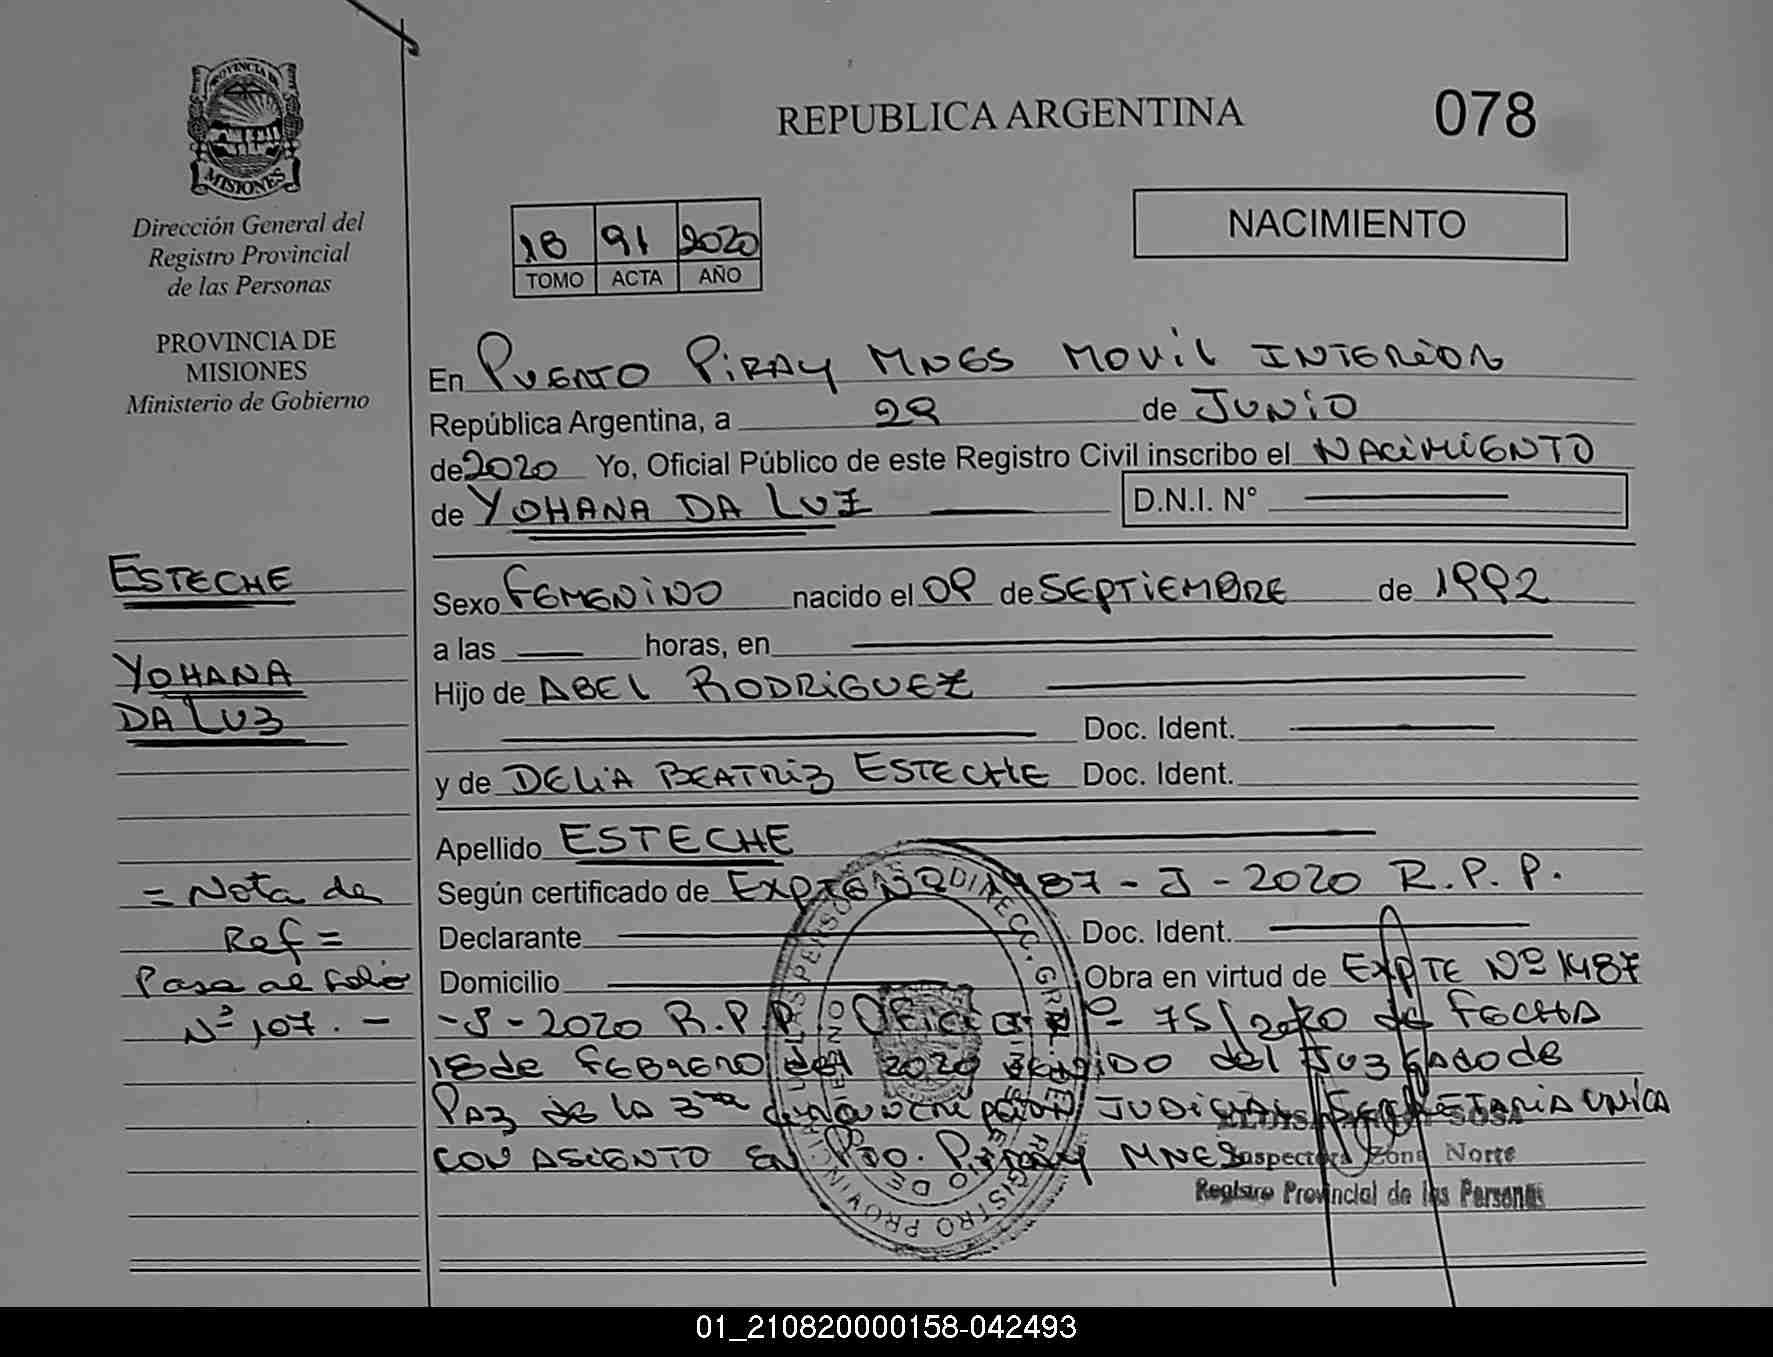 PROVINCIA DE
MISIONES
Dirección General del
Registro Provincial
de las Personas
PROVINCIA DE
MISIONES
Ministerio de Gobierno
REPUBLICA ARGENTINA
078
18 91 2020
TOMO ACTA AÑO
NACIMIENTO
En PUERTO PIRAY MNES MOVIL INTERIOR
República Argentina, a 29 de JUNIO
de 2020 Yo, Oficial Público de este Registro Civil inscribo el NACIMIENTO
de YOHANA DA LUZ D.N.I. N°
Sexo FEMENINO nacido el 09 de SEPTIEMBRE de 1992
a las horas, en
Hijo de ABEL RODRIGUEZ
Doc. Ident.
y de DELIA BEATRIZ ESTECHE Doc. Ident.
Apellido ESTECHE
Según certificado de EXPTE Nº 1487 - J - 2020 R.P.P.
Declarante Doc. Ident.
Domicilio Obra en virtud de EXPTE Nº 1487
- J - 2020 R.P.P. OFICIO Nº 75/2020 de FECHA
18 de FEBRERO del 2020 del JUZGADO de
PAZ de la 3ra JUDICIAL SECRETARIA UNICA
CON ASIENTO EN PTO. PIRAY MNES
Inspectora Zona Norte
Registro Provincial de las Personas
ESTECHE
YOHANA
DA LUZ
= Nota de
Ref =
Pasa al folio
Nº 107. -
01_210820000158-042493